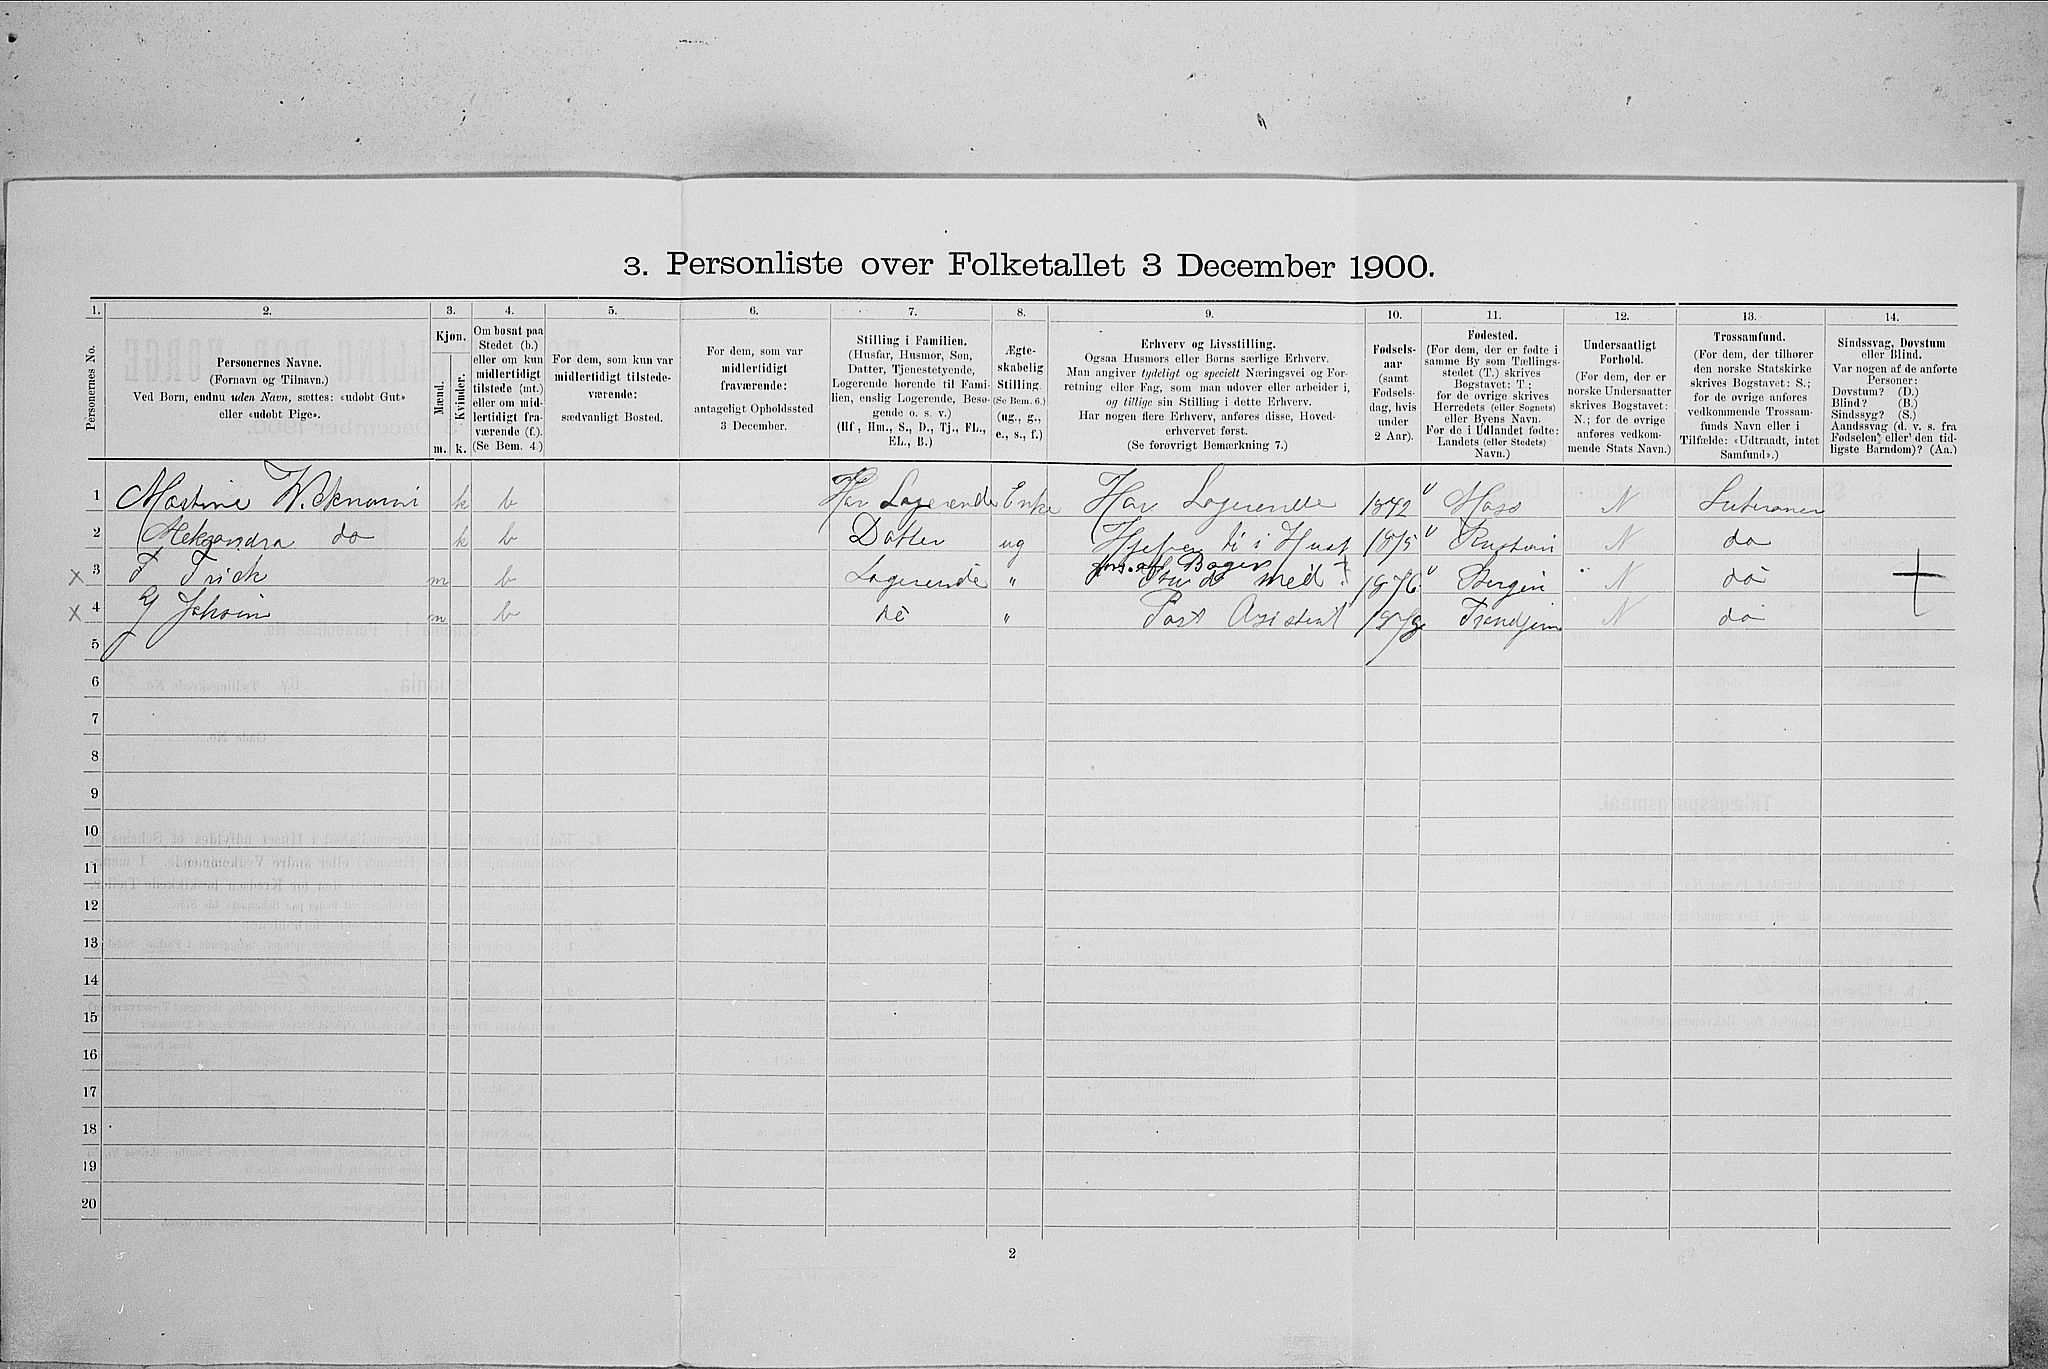 3. Personliste over Folketallet 3 December 1900.
1. 2. 3. 4. 5. 6. 7. 8. 9. 10. 11. 12. 13. 14.
Personernes No.
Personernes Navne.
(Fornavn og Tilnavn.)
Ved Børn, endnu uden Navn, sættes: «udøbt Gut»
eller «udøbt Pige».
Kjøn.
Mænd. Kvinder.
m. k.
Om bosat paa
Stedet (b.)
eller om kun
midlertidigt
tilstede (mt.)
eller om mid-
lertidigt fra-
værende (f.).
(Se Bem. 4.)
For dem, som kun var
midlertidigt tilstede-
værende:
sædvanligt Bosted.
For dem, som var
midlertidigt
fraværende:
antageligt Opholdssted
3 December.
Stilling i Familien.
(Husfar, Husmor, Søn,
Datter, Tjenestetyende,
Logerende hørende til Fami-
lien, enslig Logerende, Besø-
gende o. s. v.)
(Hf, Hm., S., D., Tj., FL.,
EL., B.)
Ægte-
skabelig
Stilling.
(Se Bem. 6.)
(ug., g.,
e., s., f.)
Erhverv og Livsstilling.
Ogsaa Husmors eller Børns særlige Erhverv.
Man angiver tydeligt og specielt Næringsvei og For-
retning eller Fag, som man udøver eller arbeider i,
og tillige sin Stilling i dette Erhverv.
Har nogen flere Erhverv, anføres disse, Hoved-
erhvervet først.
(Se forøvrigt Bemerkning 7.)
Fødsels-
aar
(samt
Fødsels-
dag, hvis
under
2 Aar).
Fødested.
(For dem, der er fødte i
samme By som Tællings-
stedet (T.) skrives
Bogstavet: T;
for de øvrige skrives
Herredets (eller Sognets)
eller Byens Navn.
For de i Udlandet fødte:
Landets (eller Stedets)
Navn.)
Undersaatligt
Forhold.
(For dem, der er
norske Undersaatter
skrives Bogstavet:
N.; for de øvrige
anføres vedkom-
mende Stats Navn.)
Trossamfund.
(For dem, der tilhører
den norske Statskirke
skrives Bogstavet: S.;
for de øvrige anføres
vedkommende Trossam-
funds Navn eller i
Tilfælde: «Udtraadt, intet
Samfund».)
Sindssvag, Døvstum
eller Blind.
Var nogen af de anførte
Personer:
Døvstum? (D.)
Blind? (B.)
Sindssyg? (S.)
Aandssvag (d. v. s. fra
Fødselen eller den tid-
ligste Barndom)? (Aa.)
1 k b Har Logerende Enke Har Logerende 1842 Moss N Luteraner
2 Aleksandra do k b Datter ug til i Huset 1875 N do
x 3 F Frick m b Logerende " Stud med. 1876 Bergen N do
x 4 m b do " Post Asistent Trondjem N do
5
6
7
8
9
10
11
12
13
14
15
16
17
18
19
20
2